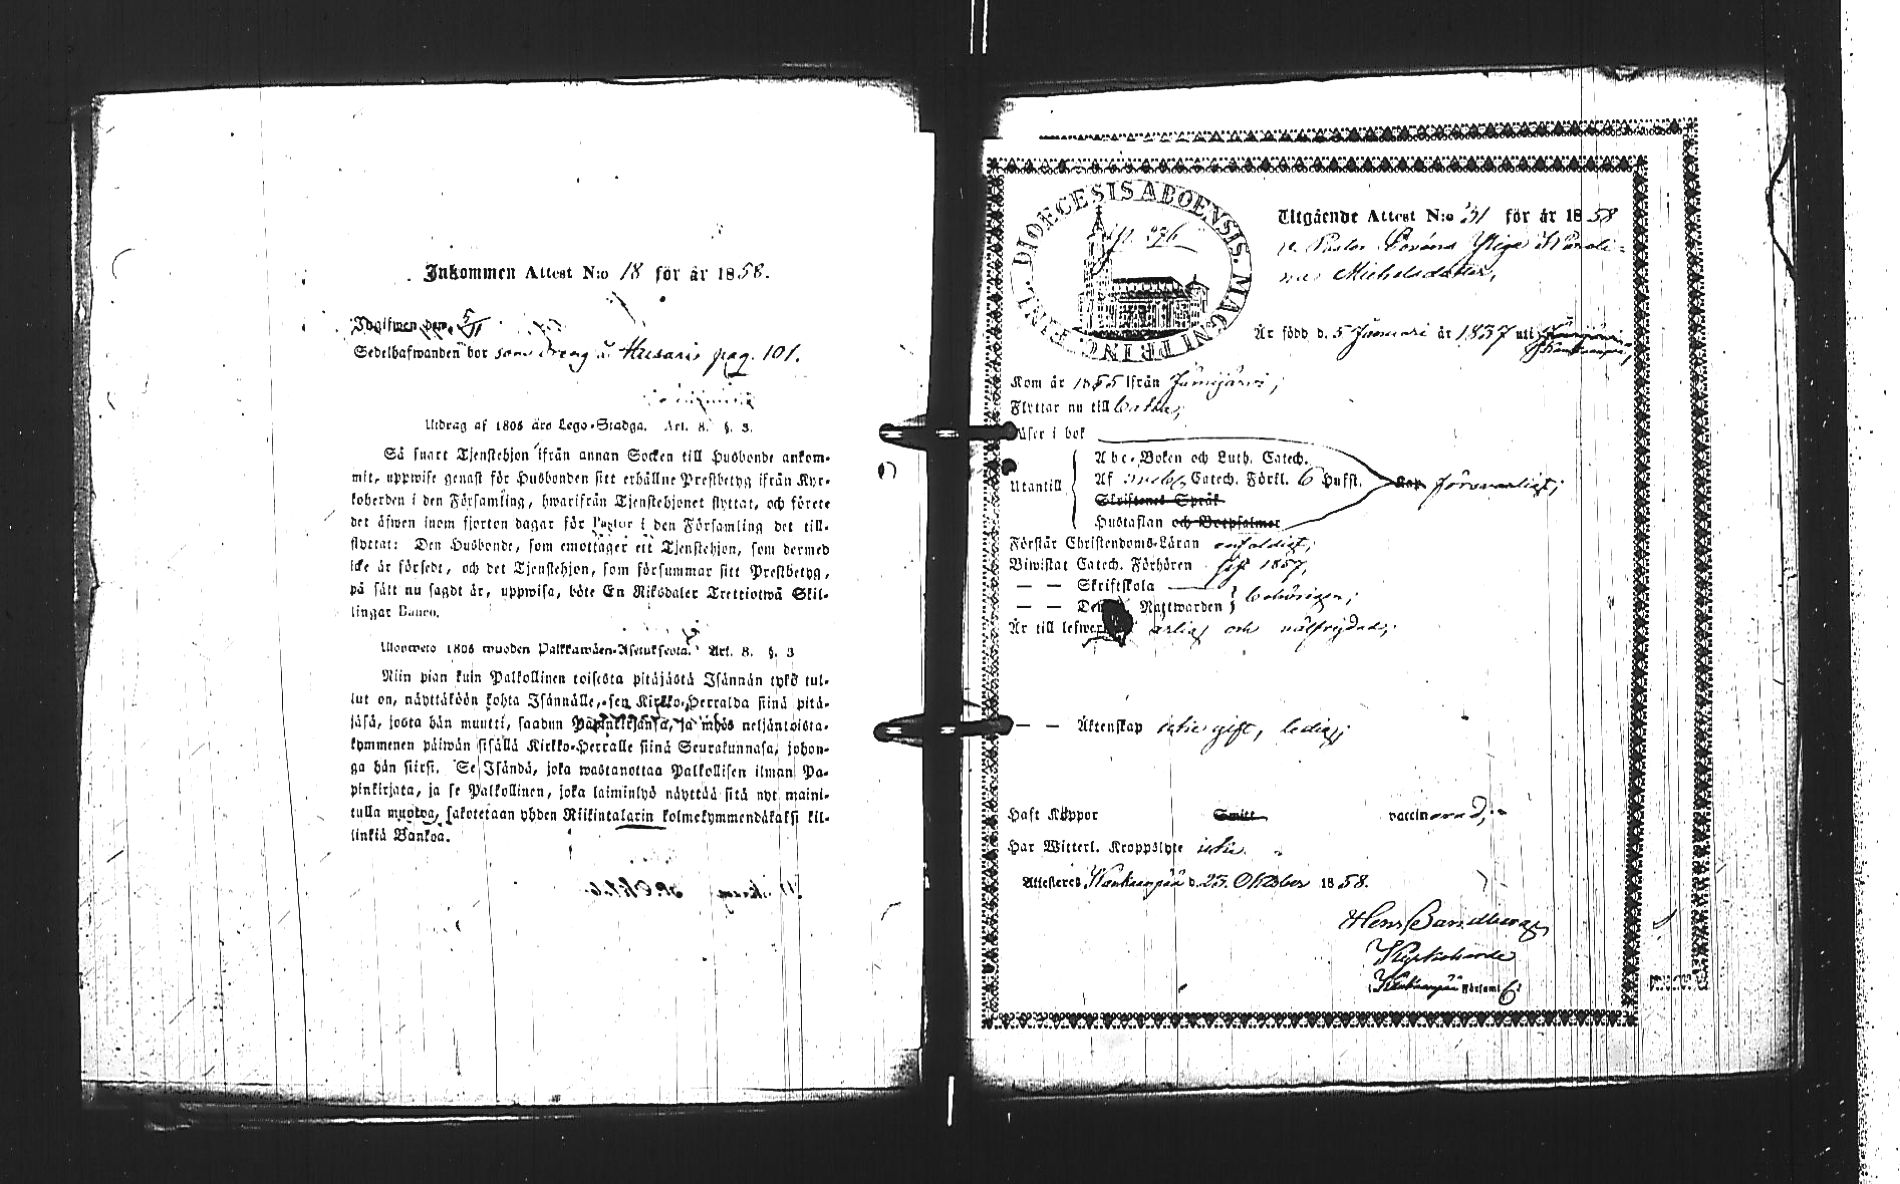 Inkommen Attest N:o 18 för år 1858.
5/11
Sedelhafwanden bor som Dreng å Husaris pag. 101.
Utdrag af 1805 års Lego-Stadga. Art. 8. §. 3.
Så snart Tjenstehjon ifrån annan Socken till Husbonde ankom-
mit, uppwise genast för Husbonden sitt erhållne Prestbetyg ifrån Kyr-
koherden i den Församling, hwarifrån Tjenstehjonet flyttat, och förete
det äfwen inom fjorton dagar för Pastor i den Församling det till-
flyttat: Den Husbonde, som emottager ett Tjenstehjon, som dermed
icke är försedt, och det Tjenstehjon, som försummar sitt Prestbetyg,
på sätt nu sagdt är, uppwisa, böte En Riksdaler Trettiotwå Skil-
lingar Banco.
Ulosweto 1805 wuoden Palkkawäen-Asetuksesta. Art. 8. §. 3
Niin pian kuin Palkollinen toisesta pitäjästä Isännän tykö tul-
lut on, näyttäköön kohta Isännälle, sen Kirkko-Herralda siinä pitä-
jäsä, josta hän muutti, saadun Papinkirjansa, ja myös neljäntoista-
kymmenen päiwän sisällä Kirkko-Herralle siinä Seurakunnasa, johon-
ga hän siirsi. Se Isändä, joka wastanottaa Palkollisen ilman Pa-
pinkirjata, ja se Palkollinen, joka laiminlyö näyttää sitä nyt maini-
tulla muotoa, sakotetaan yhden Riikintalarin kolmekymmendäkaksi kil-
linkiä Bankoa.
DIOECESIS ABOENSIS. MAGNI PRINC. FINL.
p. 376
Utgående Attest N:o 31 för år 1858
Michelsdotter,
Är född d. 5 Januari år 1837 uti
Kom år 1855 ifrån Jämijärvi;
Flyttar nu till
Läser i bok
Utantill
Abc-Boken och Luth. Catech.
Af Catech. Förkl. 6 Hufst.
Skriftenes Språk
Hustaflan och Botpsalmer
försvarligt;
Förstår Christendoms-Läran enfaldigt;
Biwistat Catech. Förhören 1857,
— — Skriftskola
— — Nattwarden
behörigen;
Är till lefwerne ärlig och välfrejdad;
— — Äktenskap icke gift, ledig;
Haft Koppor Smitt vaccinerad;
Har Witterl. Kroppslyte icke.
Attesteras Kankaanpää d. 25. Oktober 1858.
Kyrkoherde
i Kankaanpää Församl.